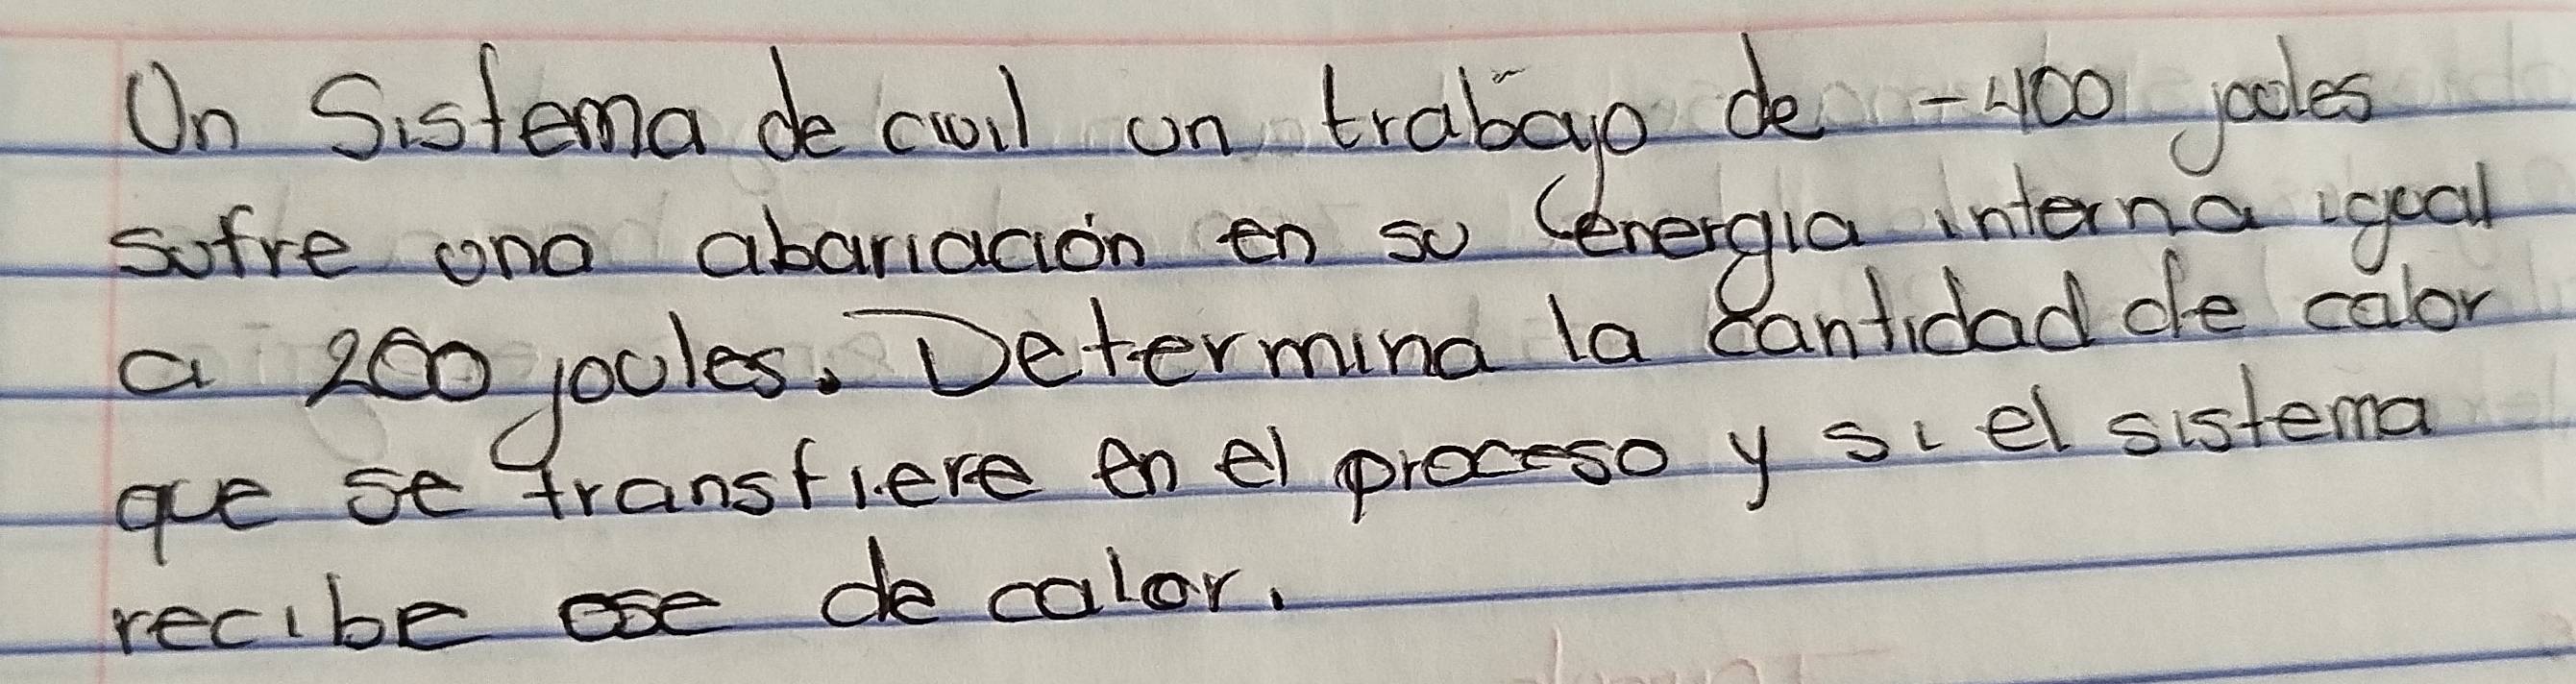 Un Sistema de civil un trabajo de -400 joules
sufre una abariación en su energia interna igual
a 200 joules. Determina la cantidad de calor
que se transfiere en el proceso y si el sistema
recibe ose de calor.